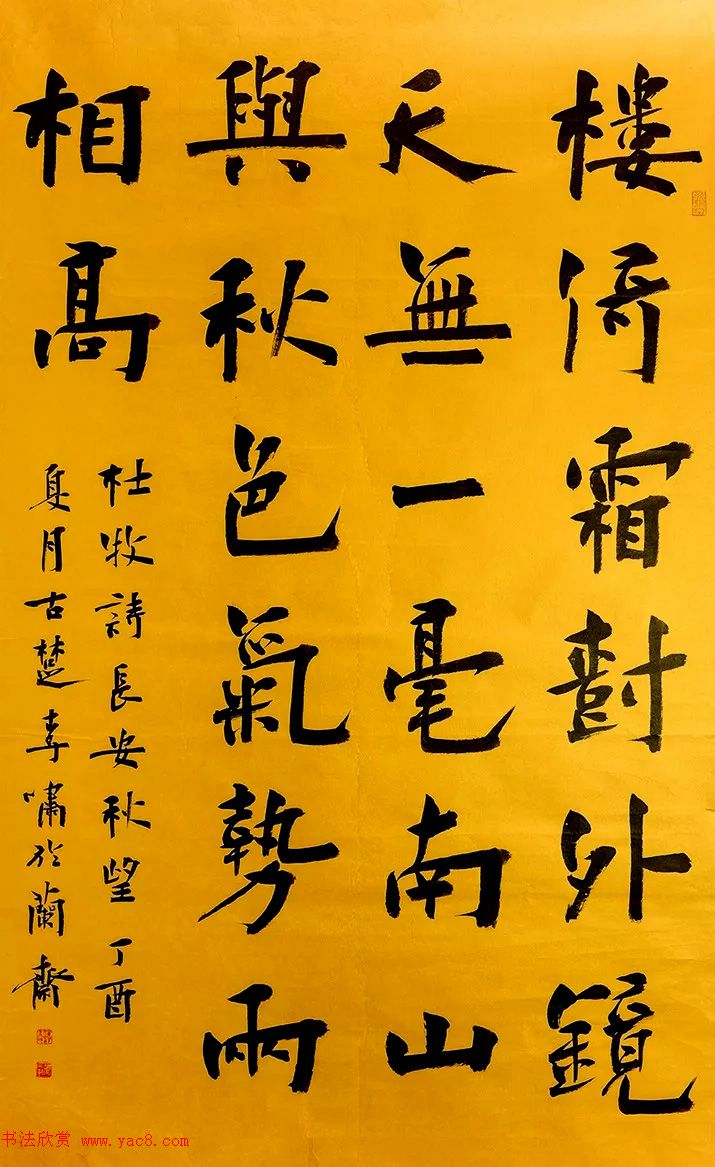 樓倚霜樹外鏡
天無一毫南山
與秋色氣勢兩
相高
杜牧詩長安秋望丁酉
夏月古楚李嘯於蘭齋
书法欣赏 www.yac8.com